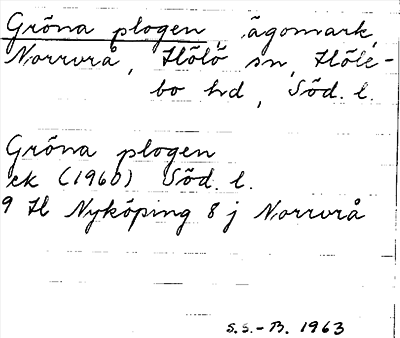 Gröna plogen, ägomark,
Norrvrå, Hölö sn, Höle-
bo hd, Söd. l.
Gröna plogen
ek (1960) Söd. l.
9 H Nyköping 8 j Norrvrå
S.S.-B. 1963